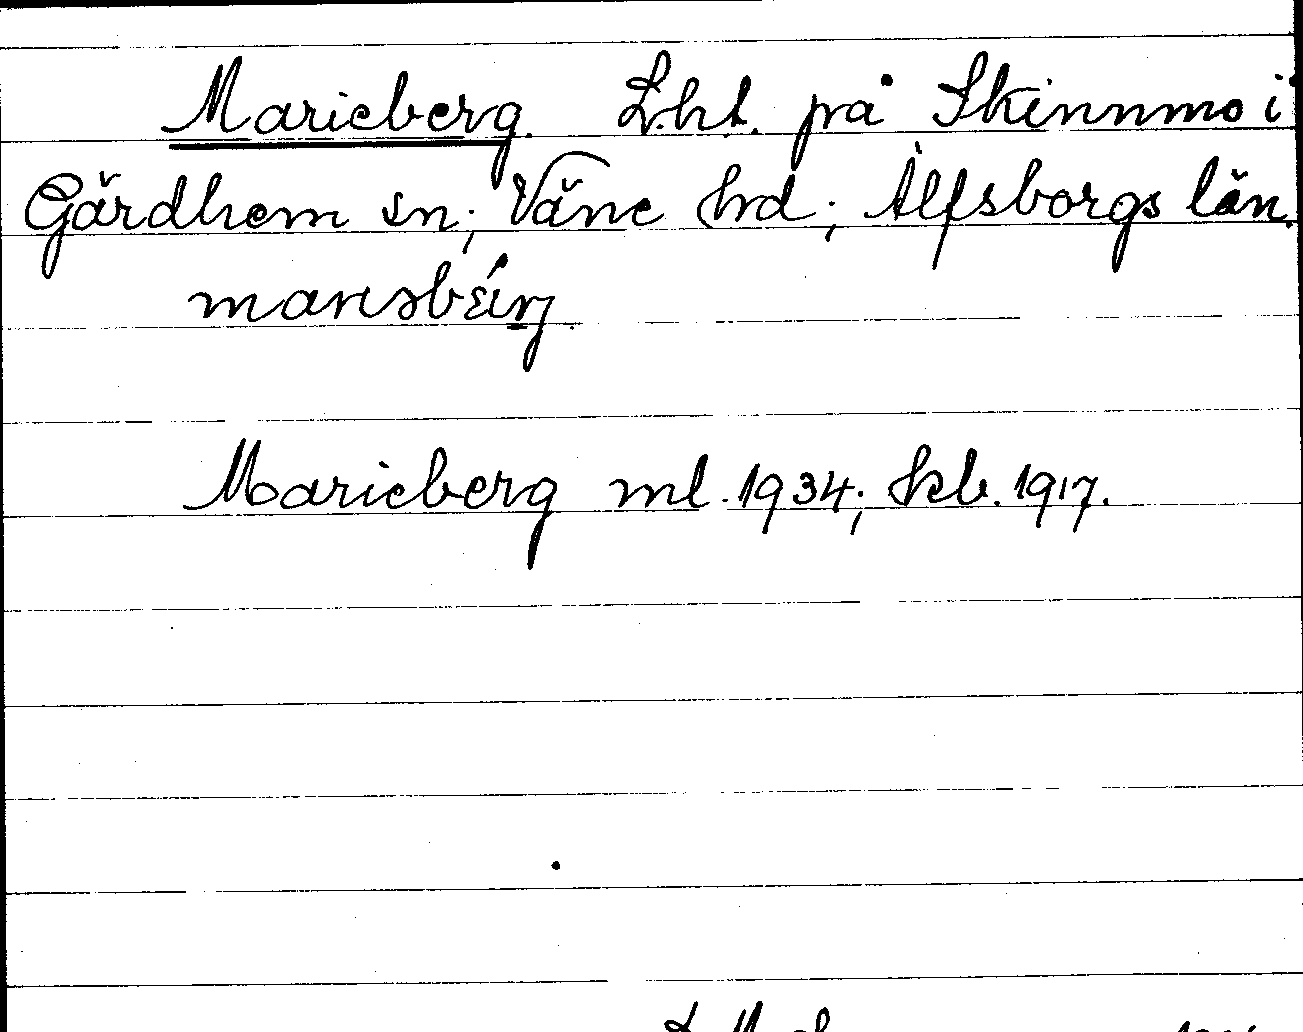 Marieberg. Lht. på Skinnmo i
Gärdhem sn; Väne hd; Älfsborgs län.
Marieberg ml. 1934; kb. 1917.